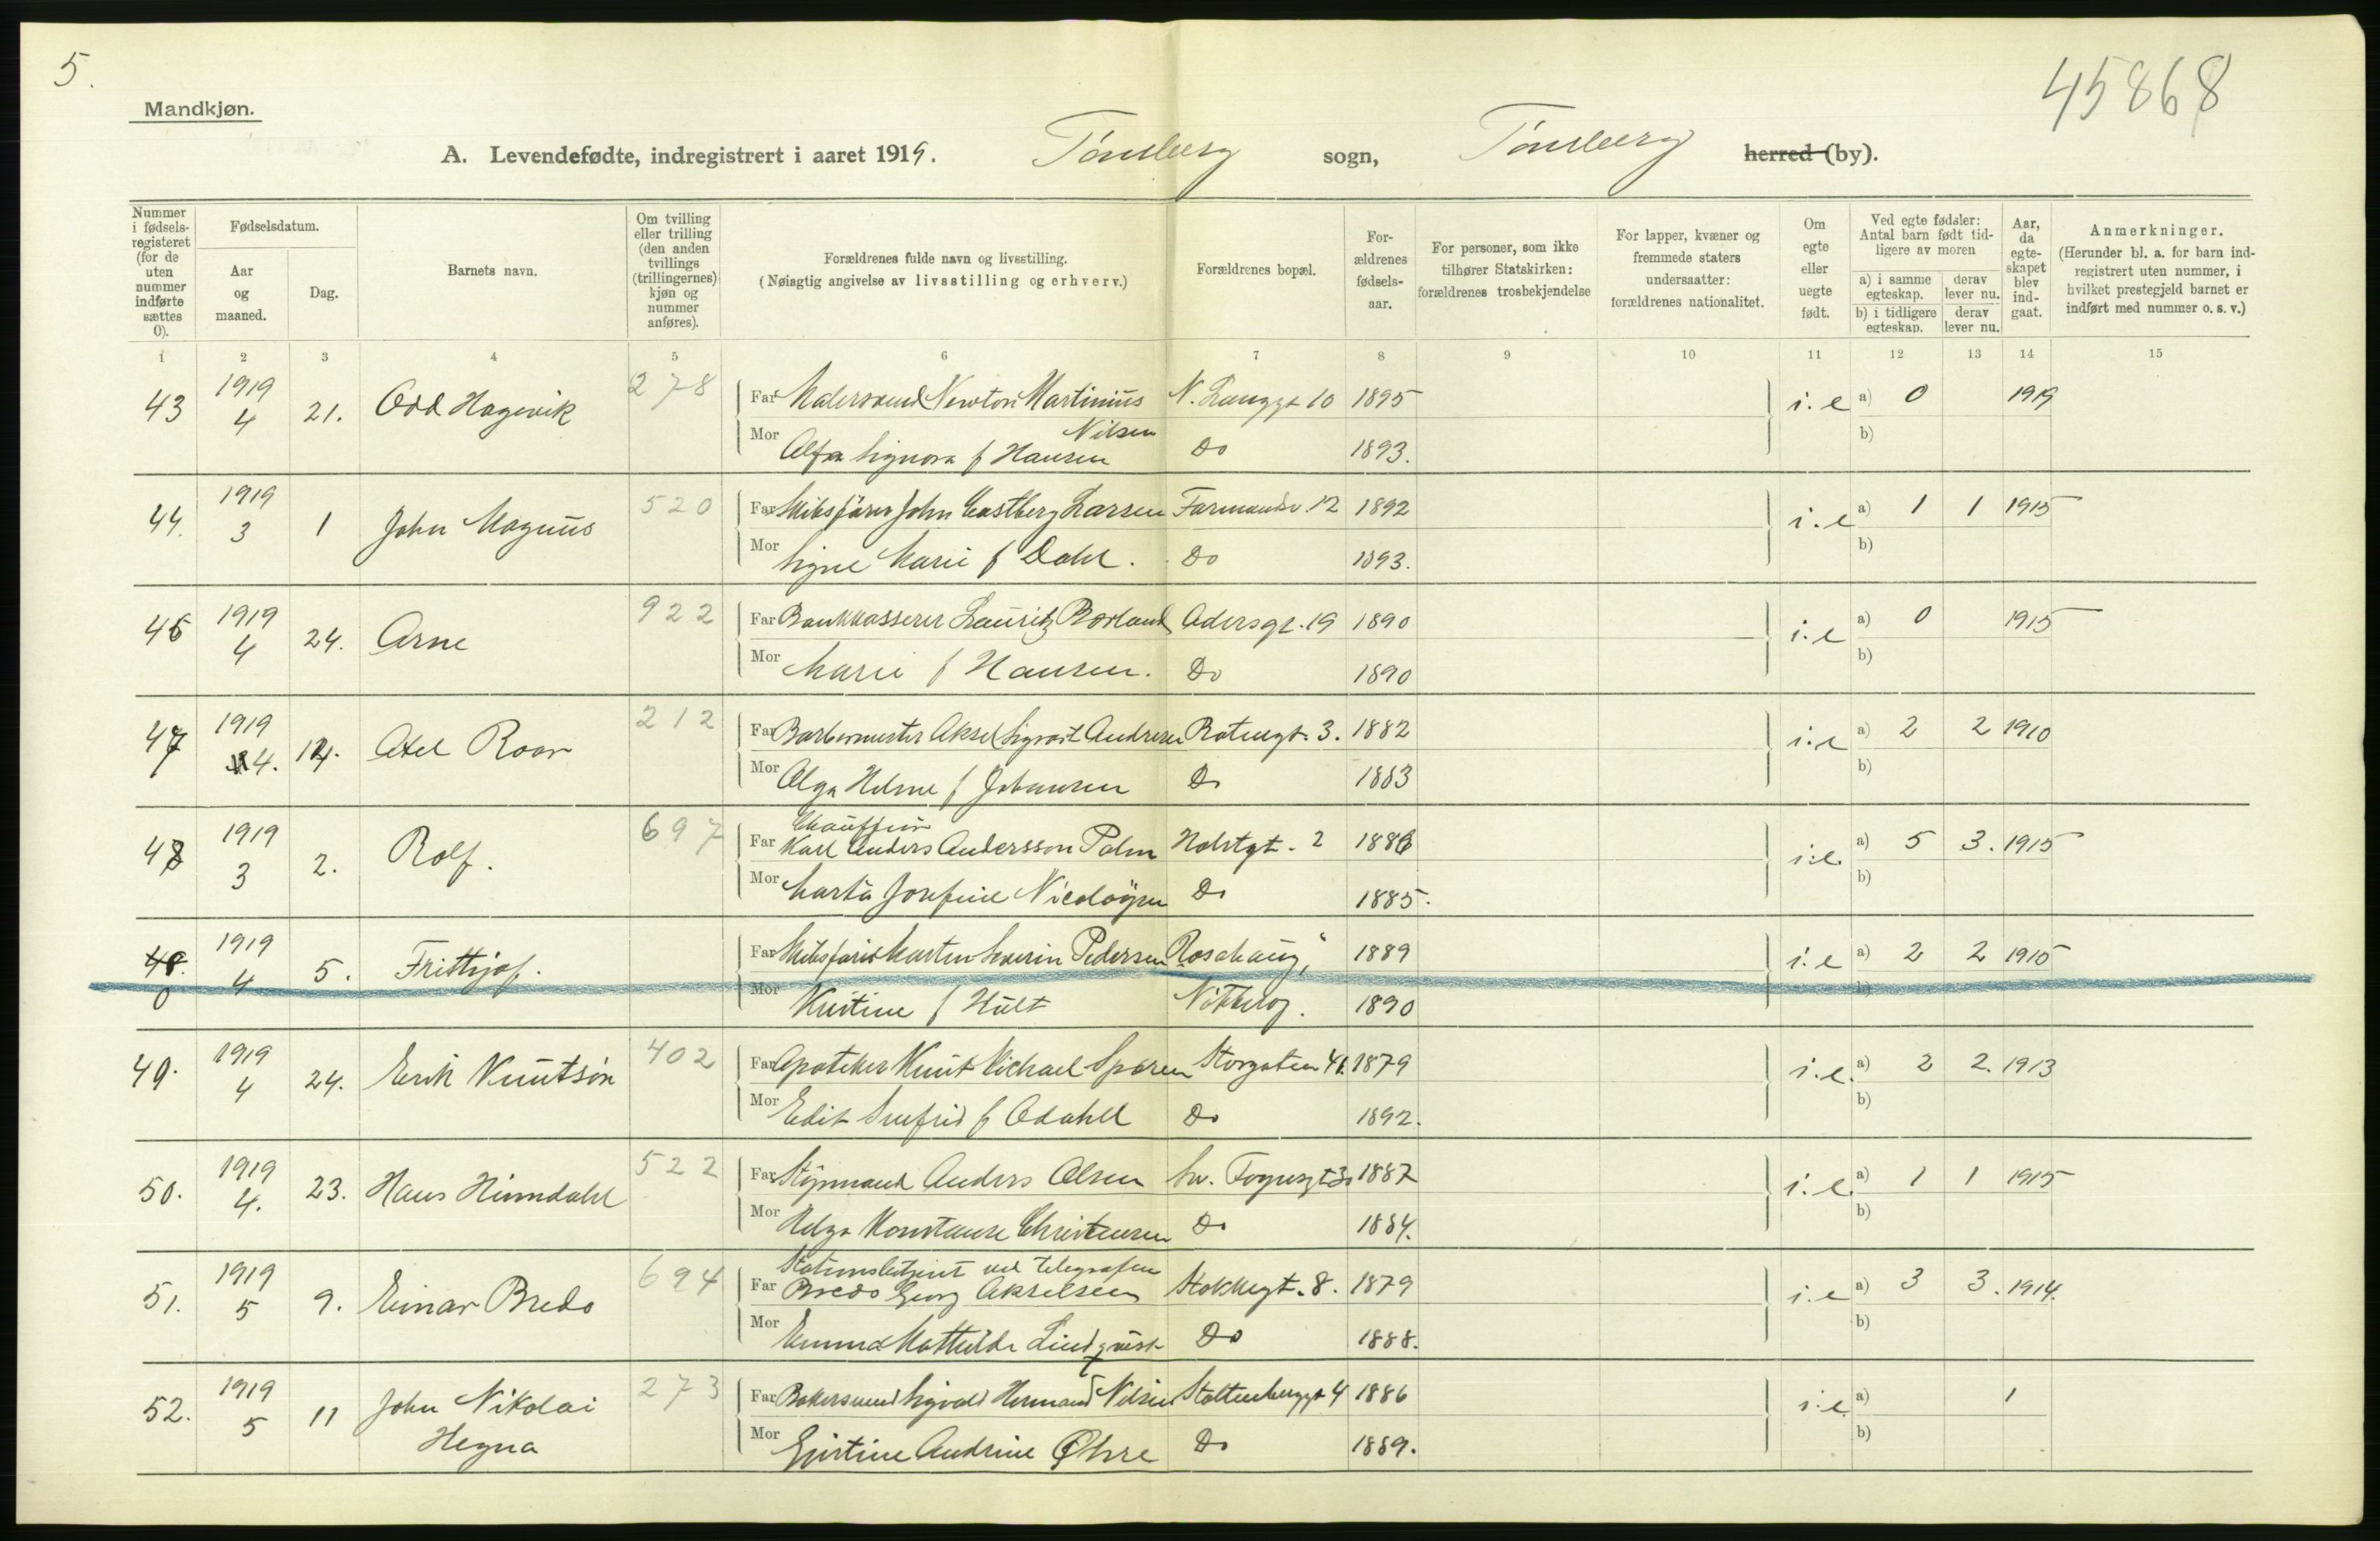 5.
45868
Mandkjøn.
A. Levendefødte, indregistrert i aaret 1919. Tønsberg sogn, Tønsberg herred (by).
Nummer i fødsels-registeret (for de uten nummer indførte sættes 0).
Fødselsdatum.
Aar og maaned.
Dag.
Barnets navn.
Om tvilling eller trilling (den anden tvillings (trillingernes) kjøn og nummer anføres).
Forældrenes fulde navn og livsstilling.
(Nøiagtig angivelse av livsstilling og erhverv.)
Forældrenes bopæl.
For-ældrenes fødsels-aar.
For personer, som ikke tilhører Statskirken: forældrenes trosbekjendelse
For lapper, kvæner og fremmede staters undersaatter: forældrenes nationalitet.
Om egte eller uegte født.
Ved egte fødsler: Antal barn født tid-ligere av moren
a) i samme egteskap.
derav lever nu.
b) i tidligere egteskap.
derav lever nu.
Aar, da egte-skapet blev ind-gaat.
Anmerkninger.
(Herunder bl. a. for barn ind-registrert uten nummer, i hvilket prestegjeld barnet er indført med nummer o. s. v.)
1 2 3 4 5 6 7 8 9 10 11 12 13 14 15
43 1919 4 21. Odd Hagevik 278 Far Malersvend Newton Martinius Nilsen N. Langgt 10 1895 i. e a) 0 1919
Mor Alfa Signora f Hansen Do 1893. b)
44. 1919 3 1 John Magnus 520 Far Skibsfører John Castberg Larsen 12 1892 i. e a) 1 1 1915
Mor Signe Marie f Dahl. Do 1893. b)
46 1919 4 24. Arne 922 Far Bankkasserer Lauritz Borland 19 1890 i. e a) 0 1915
Mor Marie f Hansen. Do 1890 b)
47 1919 4. 14. Axel Roar 212 Far Barbermester Aksel Sigvart Andresen 3. 1882 i. e a) 2 2 1910
Mor Olga Helene f Johansen Do 1883 b)
48 1919 3 2. Rolf. 697 Far Chauffeur Karl Anders Andersson Palm Holstgt. 2 1886 i. e. a) 5 3. 1915
Mor Marta Josefine Nicolaysen Do 1885. b)
48. 0 1919 4 5. Frithjof. Far Skibsfører Martin Severin Pedersen Rosehaug, 1889 i. e a) 2 2 1915
Mor Kristine f Hult Nøtterøy. 1890 b)
49. 1919 4 24. Erik Knutsøn 402 Far Apoteker Knut Michael Sparen Storgaten 41. 1879 i. e. a) 2 2. 1913
Mor Edit f Odahll Do 1892. b)
50. 1919 4. 23. Hans Himmdahl 522 Far Styrmand Anders Olsen 1887 i. e. a) 1 1 1915
Mor Helga Konstanse Christensen Do 1884. b)
51. 1919 5 9. Einar Bredo 694 Far Stationsbetjent ved telegrafen Bredo Georg Akselsen Stokkegt. 8. 1879 i. e a) 3 3. 1914.
Mor Emma Mathilde Lindqvist Do 1888. b)
52. 1919 5 11 John Nikolai Hegna 273 Far Bakersvend Sigvald Herman Nilsen Stoltenberggt 4 1886 i. e. a) 1
Mor Andrine Øhre Do 1889. b)